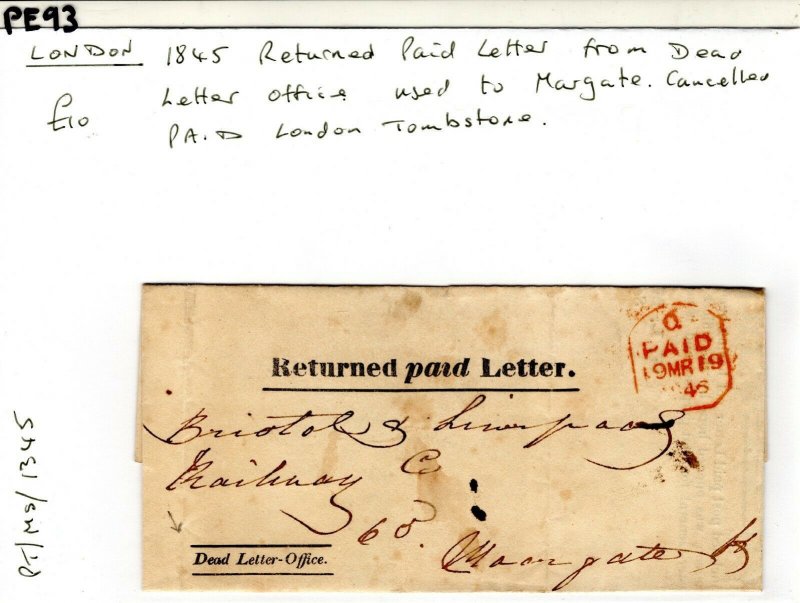 PE93
LONDON 1845 Returned Paid Letter from Dead
Letter office used to Margate. Cancelled
£10
PA.D London Tombstone.
PT/MS/1345
Returned paid Letter.
a
PAID
19MR19
1846
Bristol & Liverpool
Railway Co
65. Moorgate St
Dead Letter-Office.